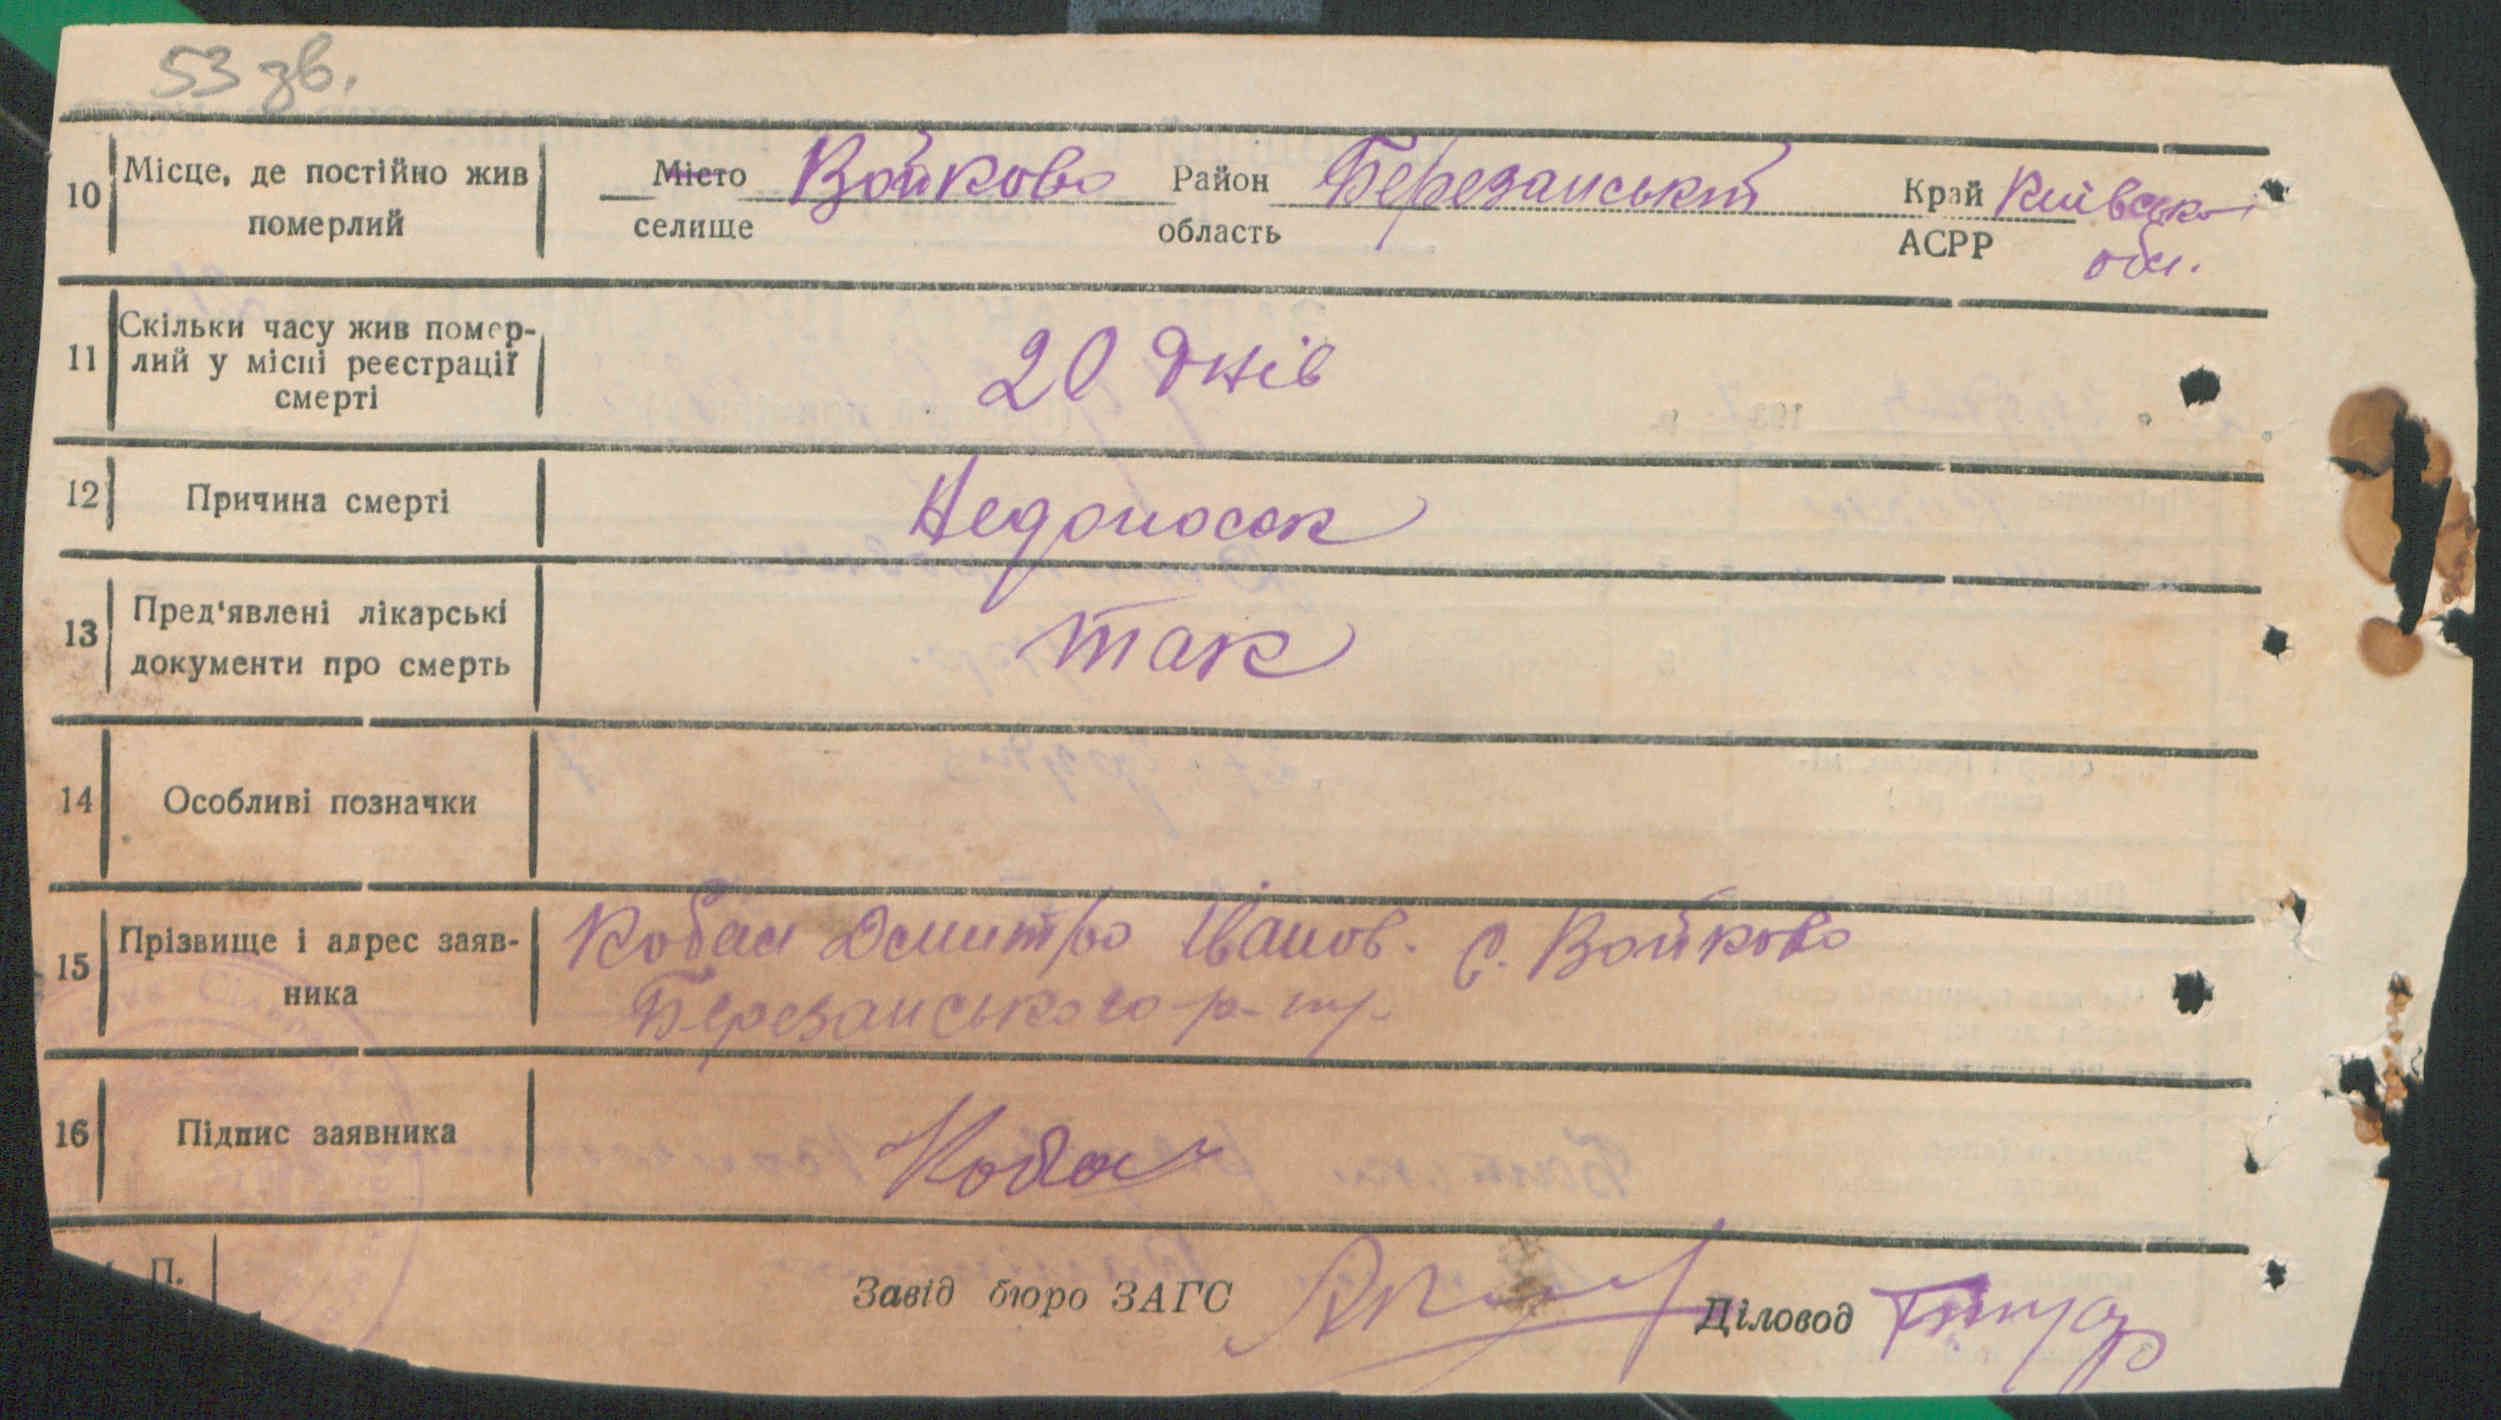 53 зв.
10 Місце, де постійно жив
померлий
Місто Войково Район Березанський Край Київської
селище область АСРР обл.
11 Скільки часу жив помер-
лий у місці реєстрації
смерті
20 днів
12 Причина смерті Недоносок
13 Пред'явлені лікарські
документи про смерть
так
14 Особливі позначки
15 Прізвище і адрес заяв-
ника
Кобан Дмитро Іванов. с. Войково
Березанського р-ну
16 Підпис заявника Кобан
П.
Завід бюро ЗАГС Діловод